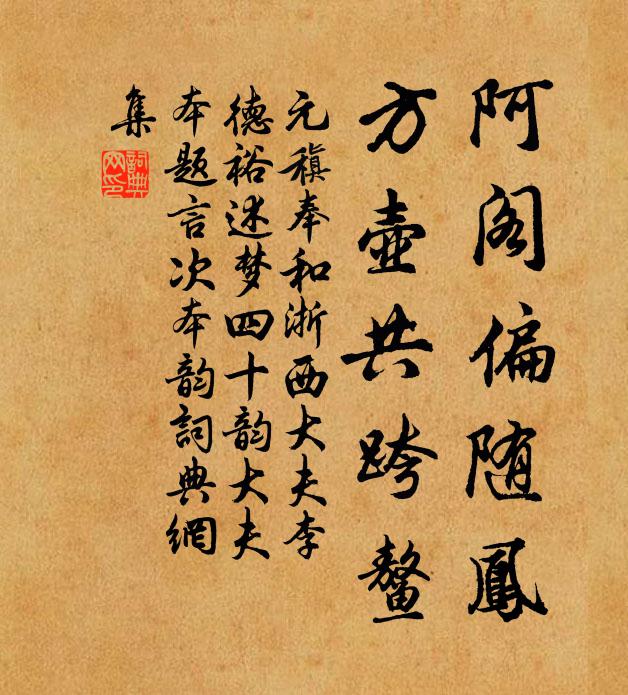 阿阁偏随鳳
方壷共跨鳌
元稹奉和浙西大夫李
德裕述梦四十韵大夫
本题言次本韵詞典網
集
詞典網印